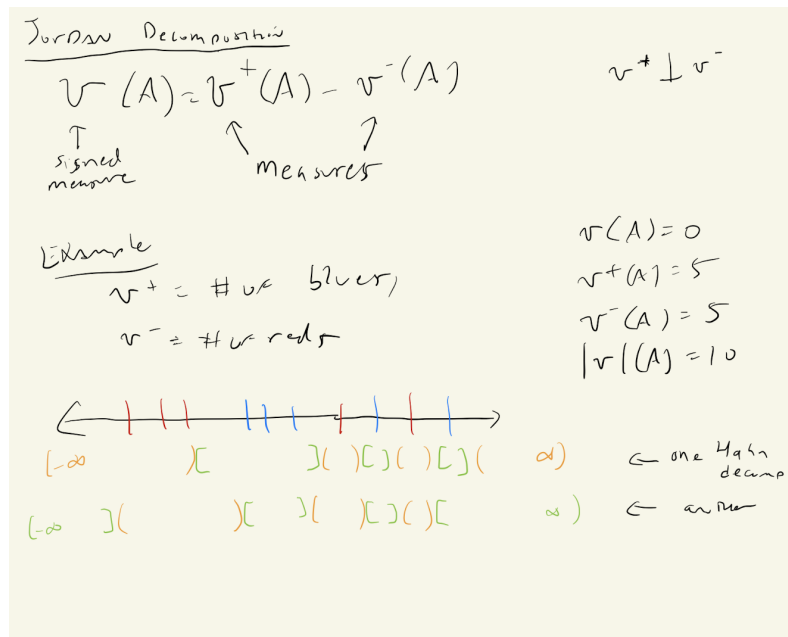 Jordan Decomposition
v(A) = v⁺(A) - v⁻(A)
v⁺ ⊥ v⁻
↑ signed measure
measures
Example
v⁺ = # of blues,
v⁻ = # of reds
v(A) = 0
v⁺(A) = 5
v⁻(A) = 5
|v|(A) = 10
(-∞ )[ ]( )[ ]( )[ ]( ∞) ← one Hahn decomp
(-∞ ]( )[ ]( )[ ]( )[ ∞) ← another